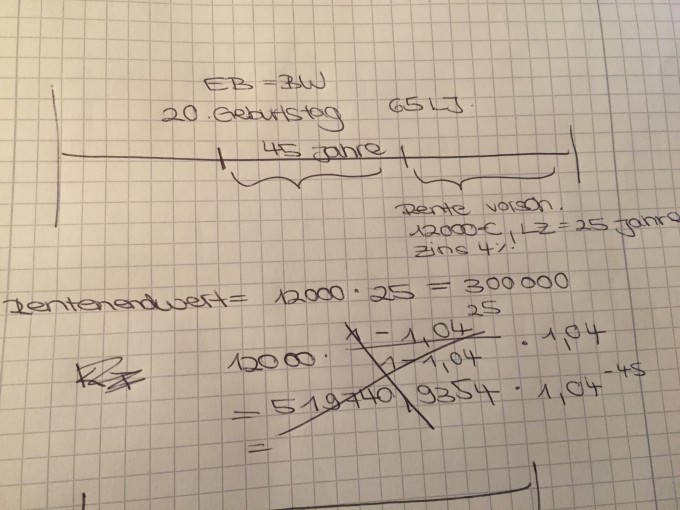 EB = BW
20. Geburtstag 65 LJ.
45 Jahre
Rente vorsch.
12000 €, LZ = 25 Jahre
Zins 4%!
Rentenendwert = 12000 · 25 = 300000
12000 · 1 - 1,04^25 / 1 - 1,04 · 1,04
= 519740,9354 · 1,04^-45
=